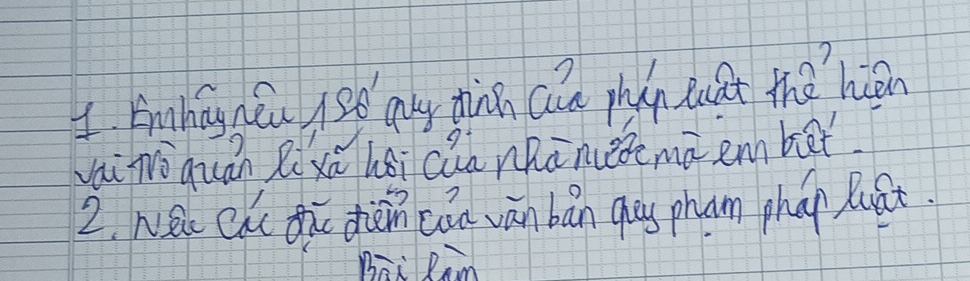 1. Em hãy nêu 1 số quy định của pháp luật thể hiện
vai trò quản lí xã hội của nhà nước mà em biết.
2. Nêu các đặc điểm của văn bản quy phạm pháp luật.
Bài làm